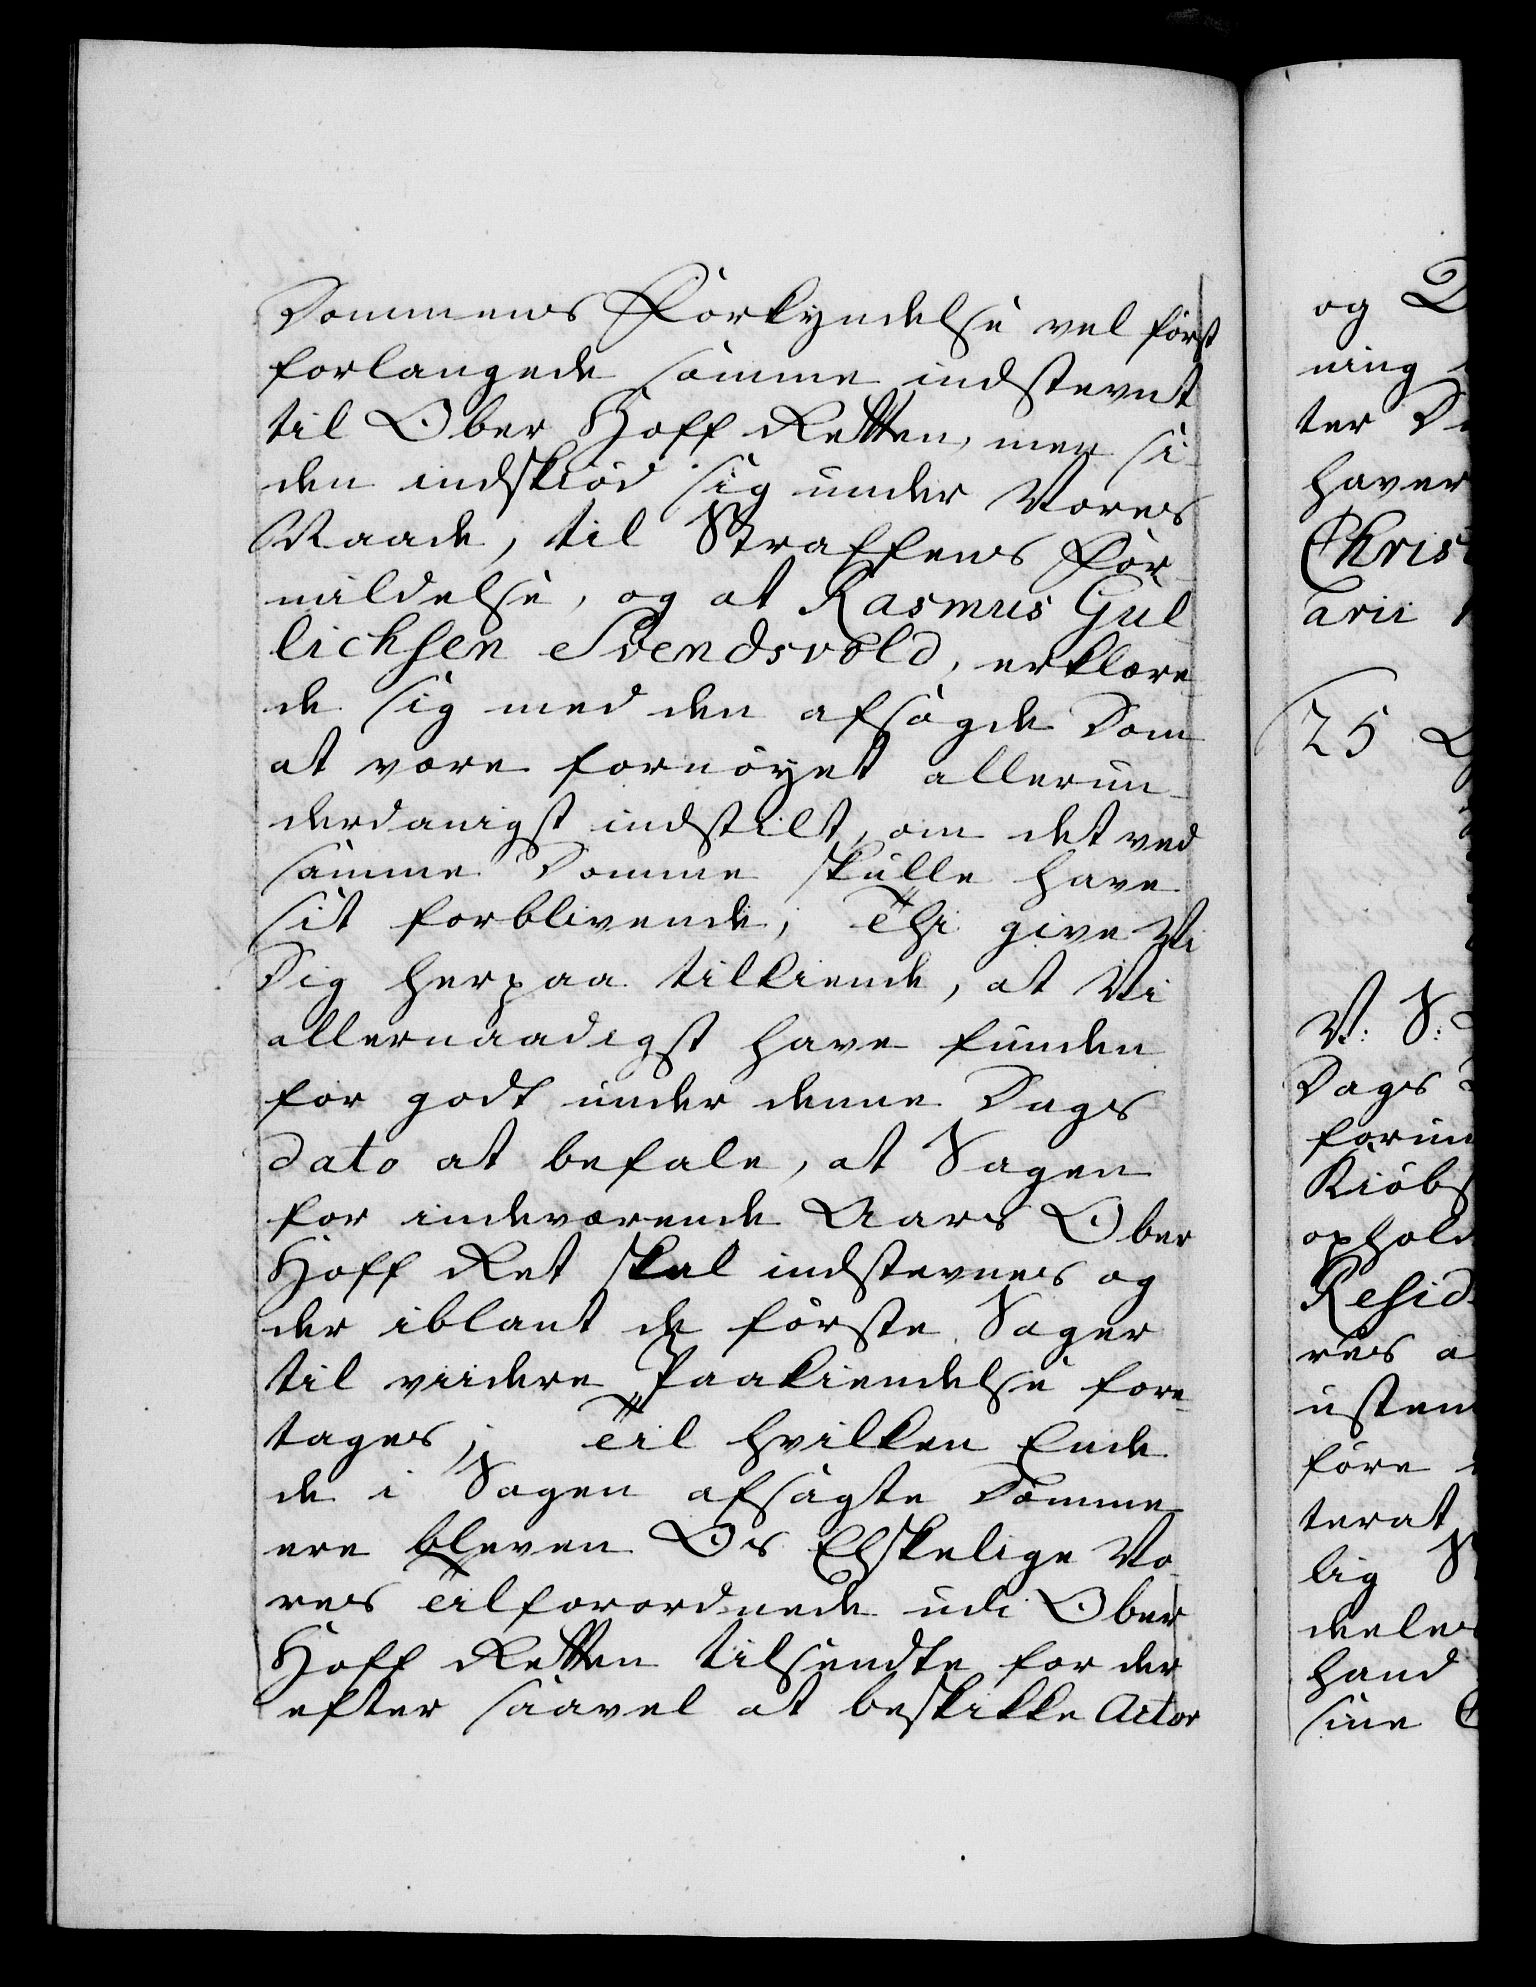 Dommens Forkyndelse vel først
forlangede samme indstevnt
til Ober Hoff Retten, men si-
den indskiød sig under Vores
Naade, til Straffens For-
mildelse, og at Rasmus Gul-
lichsen Svendsvold, erklære-
de sig med den afsagde Dom
at være fornøyet allerun-
derdanigst indstilt, om det ved
samme Domme skulle have
sit forblivende; Thi give Vi
Dig herpaa tilkiende, at Vi
allernaadigst have funden
for godt under denne Dags
dato at befale, at Sagen
for indeværende Aars Ober
Hoff Ret skal indstevnes og
der iblant de første Sager
til viidere Paakiendelse fore-
tages; Til hvilken Ende
de i Sagen afsagte Domme
ere bleven Os Elskelige Vo-
res Tilforordnede udi Ober
Hoff Retten tilsendte, for der
efter saavel at beskikke Actor
og
ning
ter
haver
Chris
tarii
25
V: S:
Dags
forun
Kiøbs
ophold
Resid
res a
usten
føre
terat
lig
deeles
hand
sine